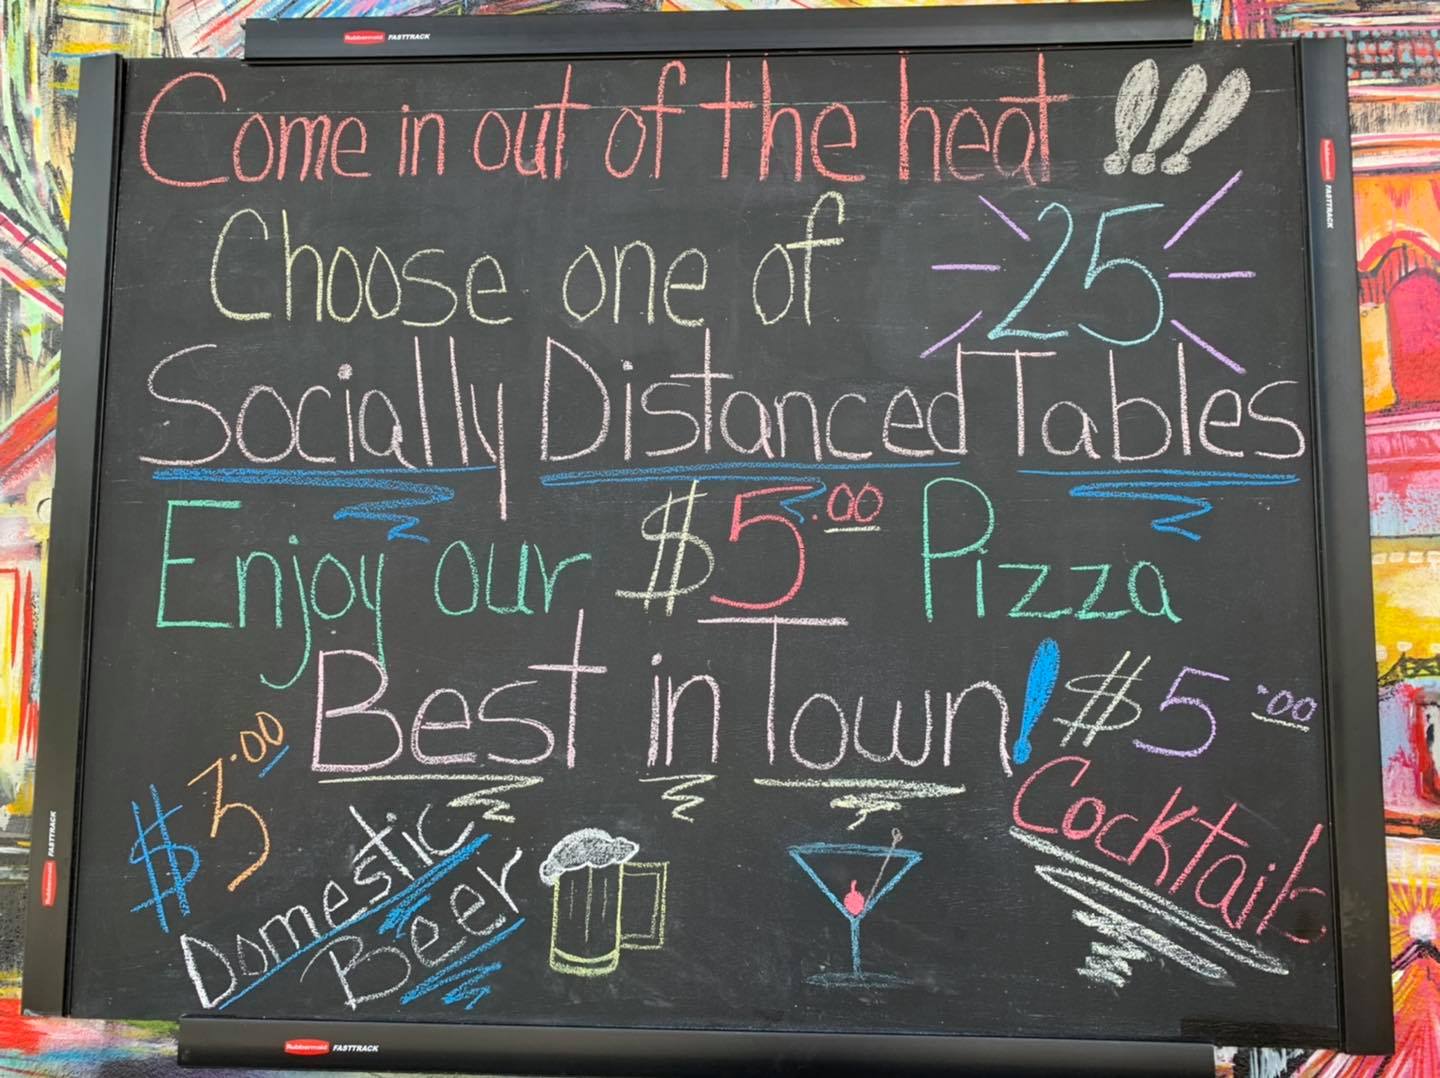 Rubbermaid FASTTRACK
Come in out of the heat !!!
Choose one of 25
Socially Distanced Tables
Enjoy our $5.00 Pizza
Best in Town!
$3.00
Domestic
Beer
$5.00
Cocktails
Rubbermaid FASTTRACK
Rubbermaid FASTTRACK
Rubbermaid FASTTRACK